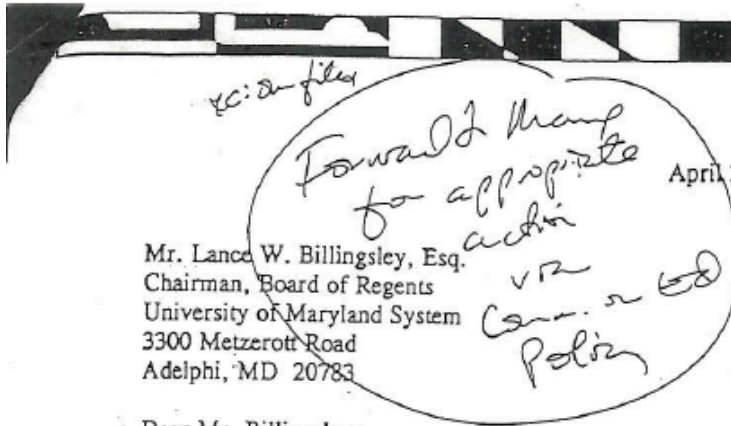 xc: our files
Forward to
for appropriate
action
via
Comm. on Ed
Policy
April
Mr. Lance W. Billingsley, Esq.
Chairman, Board of Regents
University of Maryland System
3300 Metzerott Road
Adelphi, MD 20783
Dear Mr. Billingsley